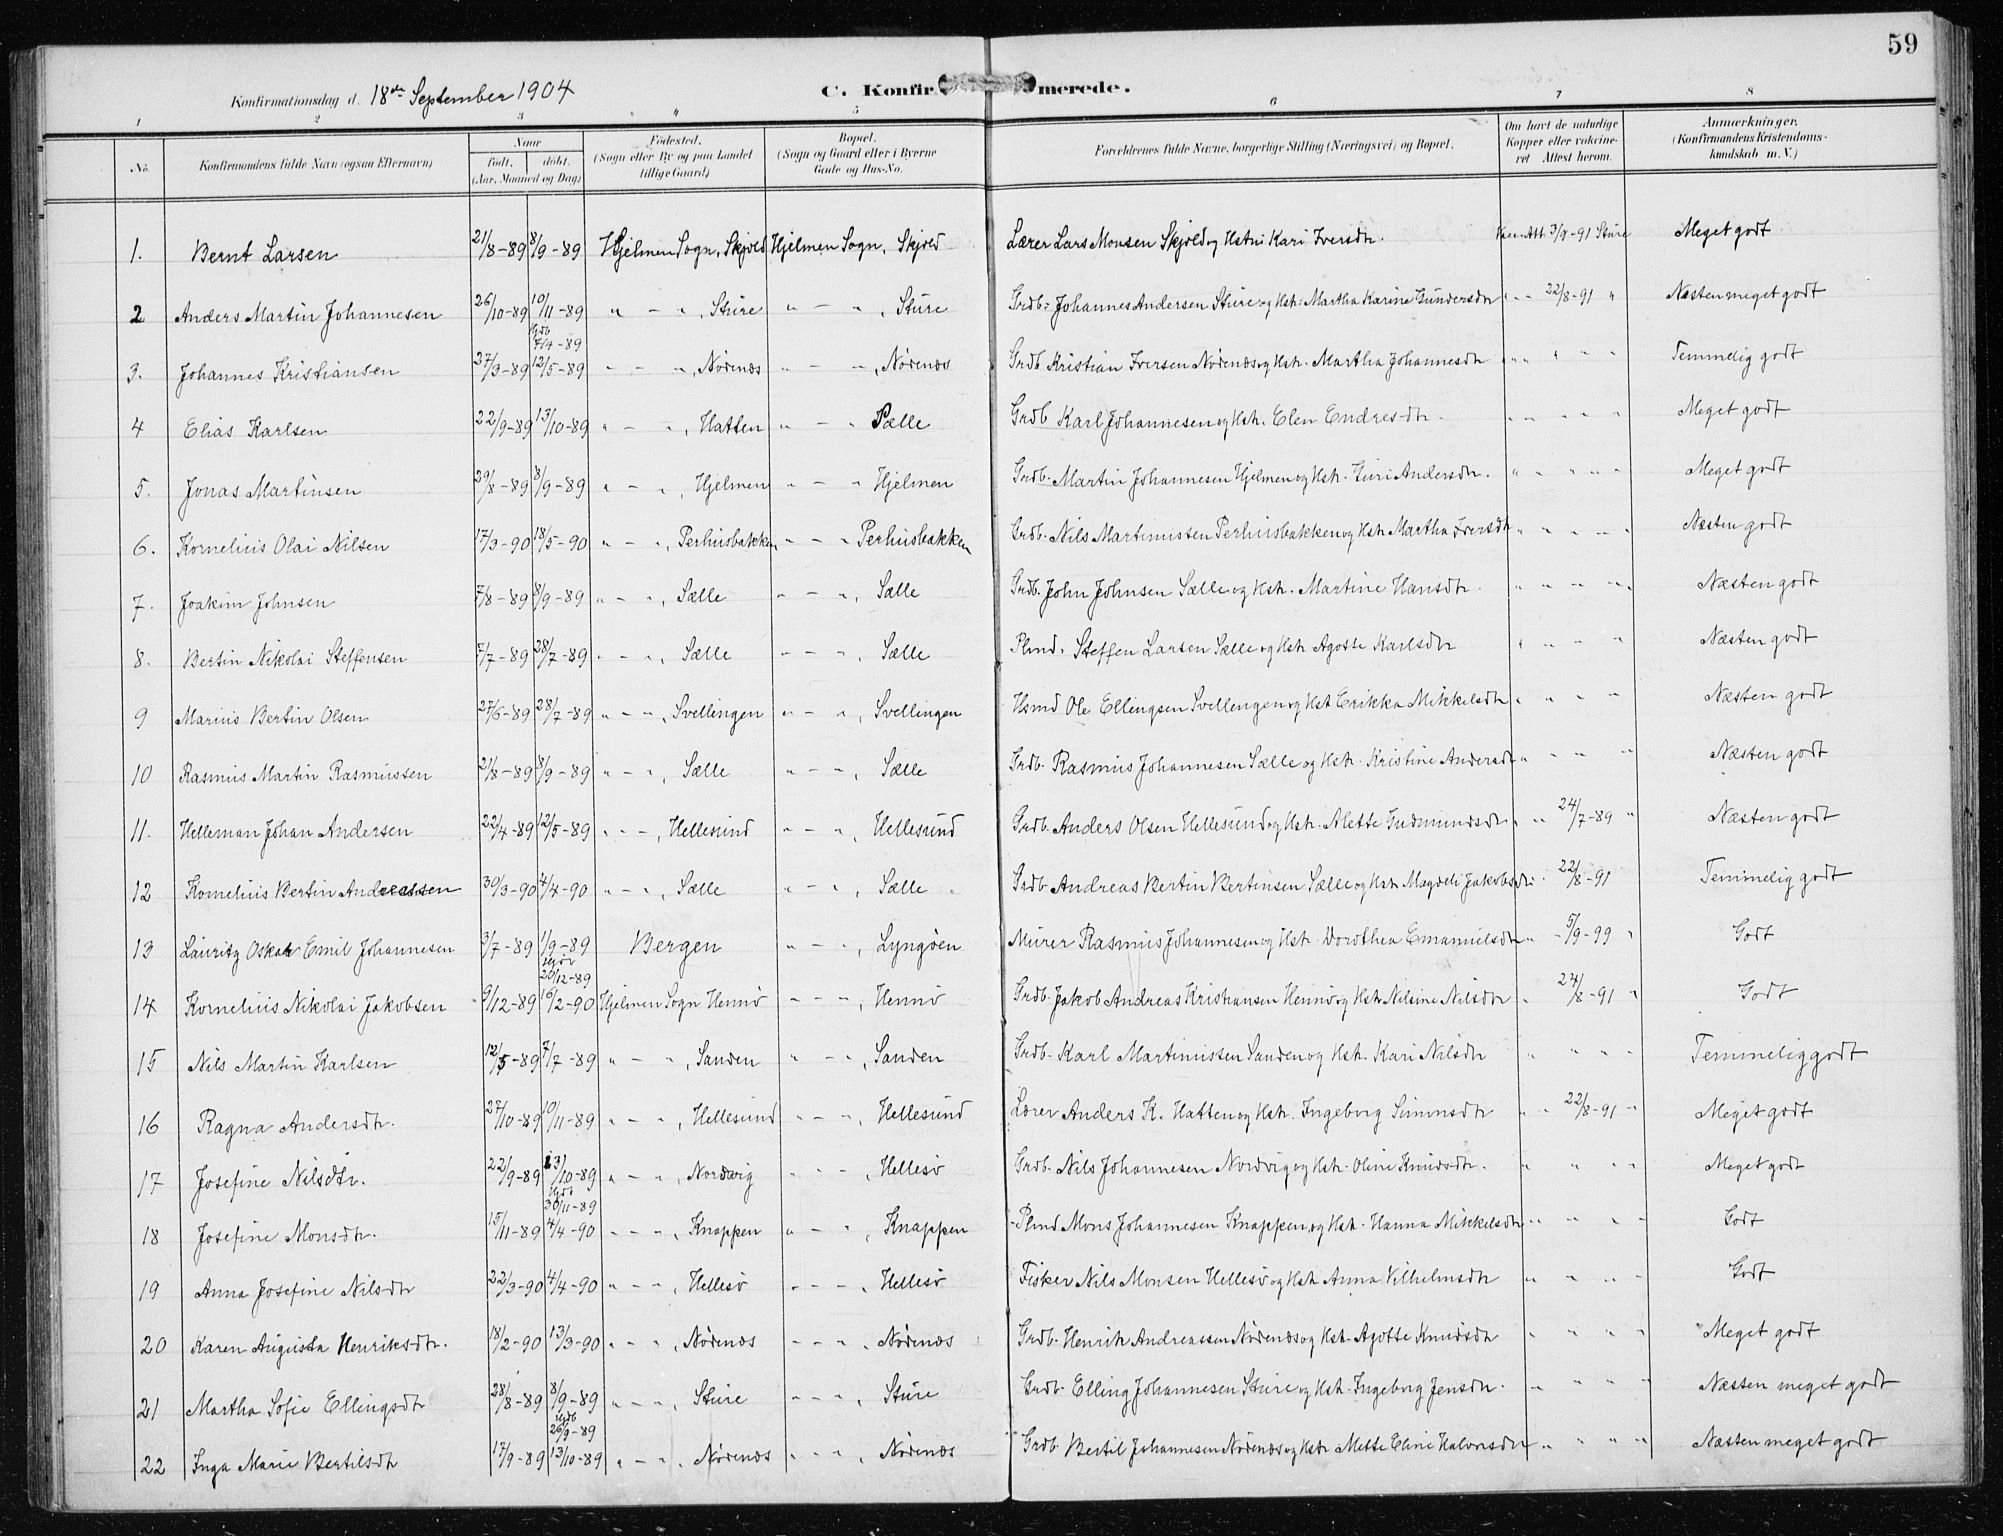 59
Konfirmationsdag d. 18de September 1904
C. Konfirmerede.
1 2 3 4 5 6 7 8
No. Konfirmandens fulde Navn (ogsaa Efternavn) Naar født. døbt. (Aar, Maaned og Dag) Fødested. (Sogn eller By og paa Landet tillige Gaard) Bopæl. (Sogn og Gaard eller i Byerne Gade og Hus-No. Forældrenes fulde Navne, borgerlige Stilling (Næringsvei) og Bopæl. Om havt de naturlige Kopper eller vaccineret Attest herom. Anmærkninger. (Konfirmandens Kristendomskundskab m. V.)
1. Bernt Larsen 21/8-89 8/9-89 Hjelmen Sogn, Skjold Hjelmen Sogn, Skjold Lærer Lars Monsen Skjold og Hstru Kari Iversdtr. Vac. Att 3/9-91 Sture Meget godt
2 Anders Martin Johannesen 26/10-89 10/11-89 " - ", Sture " - ", Sture Grdb. Johannes Andersen Sture og Hstr. Martha Karine Gundersdtr " " 22/8-91 " Næsten meget godt
3. Johannes Kristiansen 27/3-89 hjdb 7/4-89 12/5-89 " - ", Nødenæs " - ", Nødenæs Grdb Kristian Iversen Nødenæs og Hstr. Martha Johannesdtr " " " " " Temmelig godt
4 Elias Karlsen 22/9-89 13/10-89 " - ", Hatten " - " Sælle Grdb Karl Johannesen og Hstr. Elen Endresdtr " " " " " Meget godt
5. Jonas Martinsen 29/8-89 8/9-89 " - ", Hjelmen " - " Hjelmen Grdb. Martin Johannesen Hjelmen og Hstr. Guri Andersdtr. " " " " " Meget godt
6. Kornelius Olai Nilsen 17/3-90 18/5-90 " - ", Perhusbakken " - " Perhusbakken Grdb. Nils Martinussen Perhusbakken og Hstr Martha Iversdtr " " " " " Næsten godt
7. Joakim Johnsen 7/8-89 8/9-89 " - ", Sælle " - ", Sælle Grdb. John Johnsen Sælle og Hstr. Martine Hansdtr. " " " " " Næsten godt
8. Bertin Nikolai Steffensen 7/7-89 28/7-89 " - ", Sælle " - ", Sælle Plmd. Steffen Larsen Sælle og Hstr Agotte Karlsdtr " " " " Næsten godt
9 Marius Bertin Olsen 27/6-89 28/7-89 " - ", Svellingen " - ", Svellingen Hsmd Ole Ellingsen Svellengen og Hst Erikka Mikkelsdtr " " " " Næsten godt
10 Rasmus Martin Rasmussen 21/8-89 8/9-89 " - ", Sælle " - ", Sælle Grdb. Rasmus Johannesen Sælle og Hstr. Kristine Andersdtr " " " " Næsten godt
11. Helleman Johan Andersen 22/4-89 12/5-89 " - ", Hellesund " - ", Hellesund Grdb. Anders Olsen Hellesund og Hstr. Alette Gudmundsdtr " " 24/7-89 " Næsten godt
12 Kornelius Bertin Andreassen 30/3-90 4/4-90 " - ", Sælle " - ", Sælle Grdb Andreas Bertin Bertinsen Sælle og Hstr Magdeli Jakobsdtr " 22/8-91 Temmelig godt
13 Lauritz Oskar Emil Johannesen 3/7-89 1/9-89 Bergen " - ", Lyngøen Murer Rasmus Johannesen og Hstr. Dorothea Emanuelsdtr " - 5/9-99 " Godt
14 Kornelius Nikolai Jakobsen 9/12-89 20/12-89 16/2-90 Hjelmen Sogn Hennø " - ", Hennø Grdb. Jakob Andreas Kristiansen Hennø og Hstr Nilsine Nilsdtr " 24/8-91 " Godt
15 Nils Martin Karlsen 12/5-89 7/7-89 " - ", Sanden " - ", Sanden Grdb. Karl Martinussen Sanden og Hstr. Kari Nilsdtr " " " " Temmelig godt
16 Ragna Andersdtr. 27/10-89 10/11-89 " - ", Hellesund " - ", Hellesund Lærer Anders K. Hatten og Hstr. Ingeborg Simonsdtr " " 22/8-91 " Meget godt
17 Josefine Nilsdtr. 22/9-89 13/10-89 " - ", Nordvig " - ", Hellesø Grdb. Nils Johannesen Nordvig og Hstr. Oline Knudsdtr. " " " " Meget godt
18 Josefine Monsdtr. 15/11-89 hjdb 30/11-89 4/4-90 " - ", Knappen " - ", Knappen Plmd Mons Johannesen Knappen og Hstr. Hanna Mikkelsdtr " " " " Godt
19 Anna Josefine Nilsdtr 22/3-90 4/4-90 " - ", Hellesø " - ", Hellesø Fisker Nils Monsen Hellesø og Hstr Anna Vilhelmsdtr " " " " Godt
20 Karen Augusta Henriksdtr. 18/2-90 13/3-90 " - ", Nødenæs " - ", Nødenæs Grdb. Henrik Andreassen Nødenæs og Hstr. Agotte Knudsdtr " " " " Meget godt
21 Martha Sofie Ellingsdtr 28/8-89 8/9-89 " - ", Sture " - ", Sture Grdb. Elling Johannesen Sture og Hstr. Ingeborg Jensdtr. " " " " Næsten meget godt
22 Inga Marie Bertilsdtr 17/9-89 hjdb 26/9-89 13/10-89 " - ", Nødenæs " - ", Nødenæs Grdb. Bertil Johannesen Nødenæs og Hstr Mette Eline Halvorsdtr " " " " Næsten meget godt